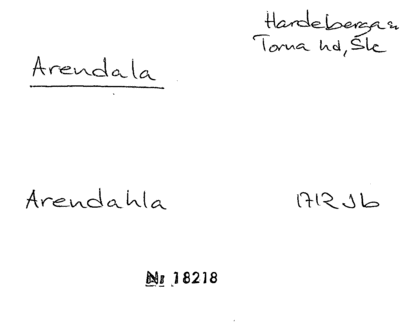 Hardeberga sn
Torna hd, Sk
Arendala
Arendahla 1712 Jb
Nr 18218